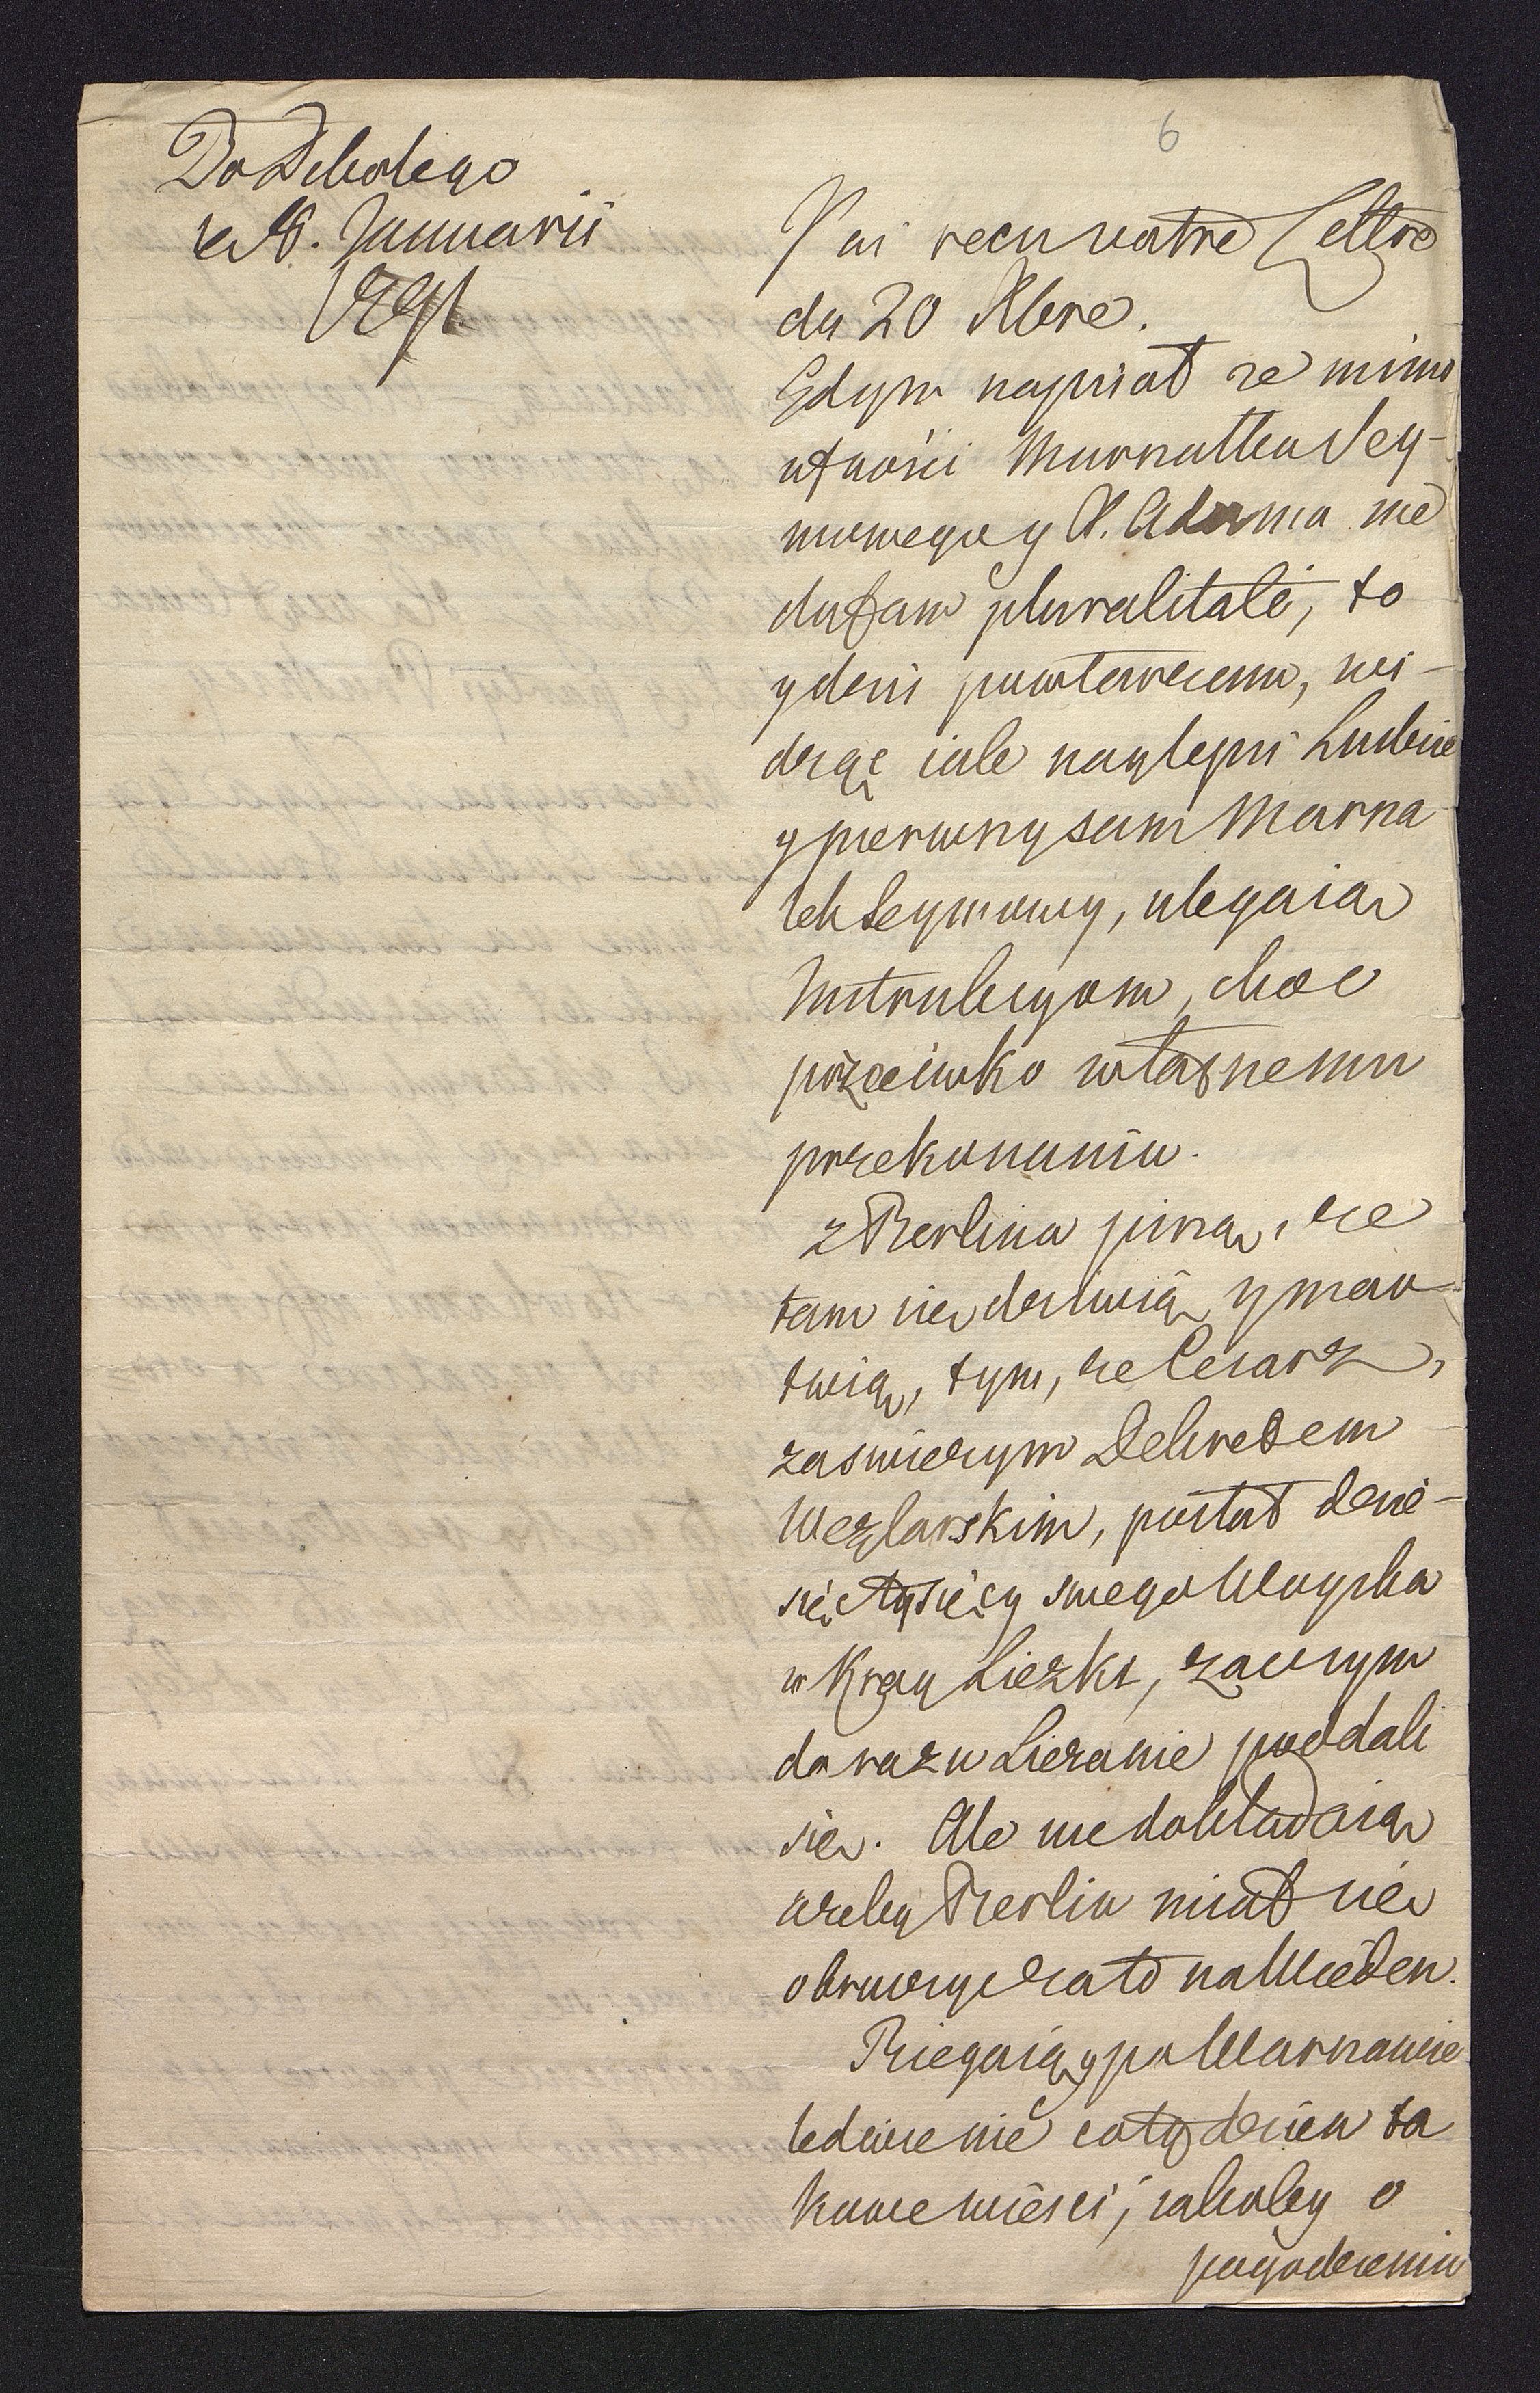 6
Do Debolego
8. Januarii
1791
J'ai recu votre Lettre
du 20 Xbre.
Gdym napisał ze mimo
ufności Marszałka Sey-
mowego y X. Adama nie
dufam pluralitati, to
y dziś powtarzam, wi-
dząc iak nayleysi Ludzie
y pierwszy sam Marsza
łek Seymowy, ulegaią
Instrukcyom, choc
przeciwko własnemu
przekonaniu.
z Berlina piszą, ze
tam się dziwią y mar
twią, tym, ze Cesarz,
za swieżym Dekretem
Wezlarskim, posłał dzie-
sięc tysięcy swego Woyska
w Kray Liezki, zaczym
do razu Liezanie poddali
się. Ale nie dokładaią
azeby Berlin miał się
obruszyc za to na Wieden.
Biegaią y po Warszawie
ledwie nie co tydzien ta
kowe wiesci, iakoby o
pogodzeniu